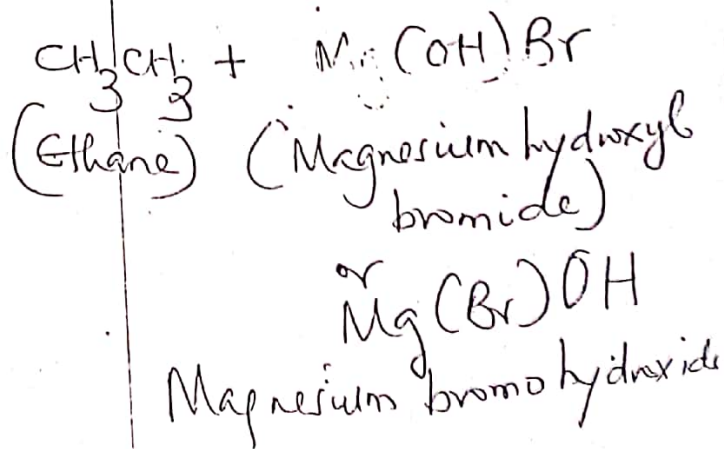 CH3CH3 + Mg(OH)Br
(Ethane) (Magnesium hydroxyl
bromide)
or
Mg(Br)OH
Magnesium bromohydroxide